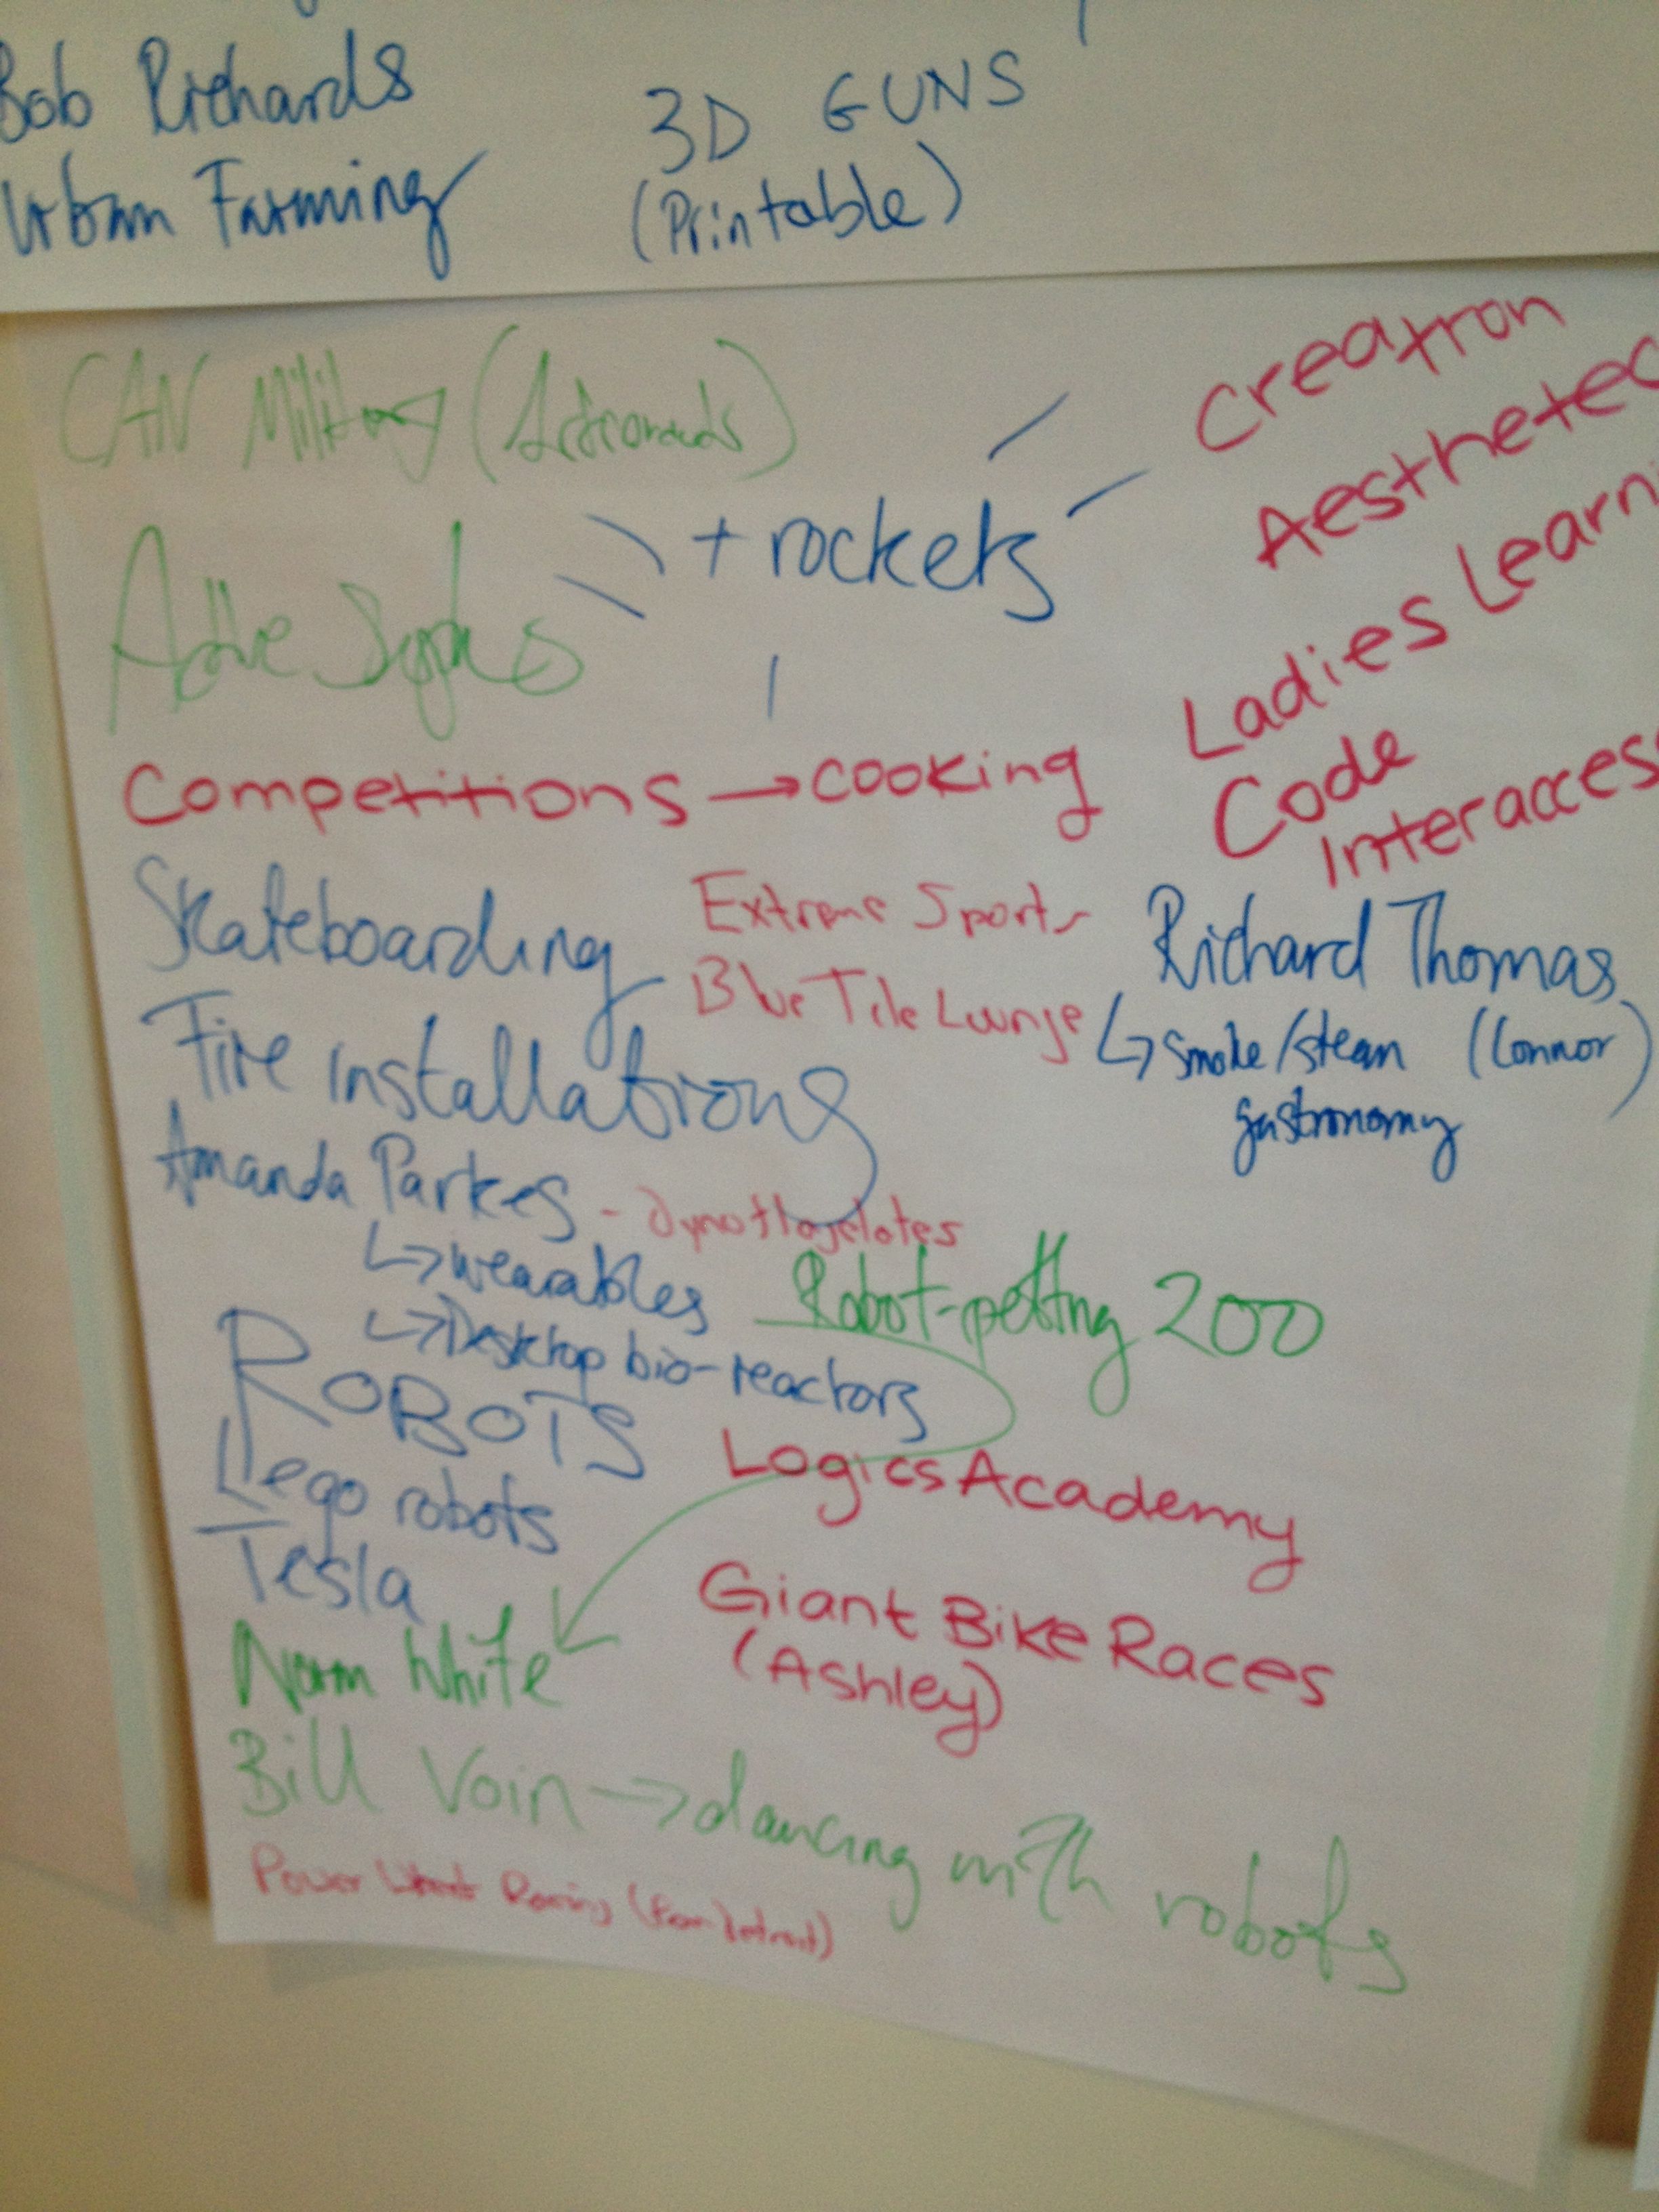 Bob Richards
Urban Farming
3D GUNS
(Printable)
CAN Military
+ rockets
Creatron
Aesthetec
Ladies Learni
Code
Interaccess
Competitions → cooking
Skateboarding
Extreme Sports
Blue Tile Lounge
Richard Thomas
↳ smoke/steam (Connor)
gastronomy
Fire installations
Amanda Parkes - dynoflagelates
↳ wearables
↳ Desktop bio-reactors
Robot-petting zoo
ROBOTS
Lego robots
Tesla
Logics Academy
Giant Bike Races
(Ashley)
Norm White
Bill Voin → dancing with robots
Power Racing (from Detroit)